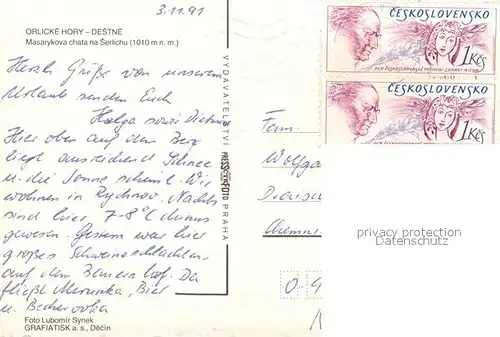 3.11.91
ORLICKÉ HORY – DEŠTNÉ
Masarykova chata na Šerlichu (1010 m n. m.)
Herzl. Grüße von unserem
Urlaub senden Euch
Helga sowie Dietmar
Hier oben auf dem Berg
liegt ausreichend Schnee
u. die Sonne scheint. Wir
wohnen in Rychnov. Nachts
sind hier 7-8°C minus
gewesen. Gestern war hier
großes Schweineschlachten
auf dem Bauernhof. Da
fließt Meruňka, Bier
u. Becherovka
Foto Lubomír Synek
GRAFIATISK a. s., Děčín
VYDAVATELSTVÍ PRESSFOTO PRAHA
ČESKOSLOVENSKO
1Kčs
DEN ČESKOSLOVENSKÉ POŠTOVNÍ ZNÁMKY
ČESKOSLOVENSKO
1Kčs
Fam.
Wolfga
Chemni
privacy protection
Datenschutz
0-9